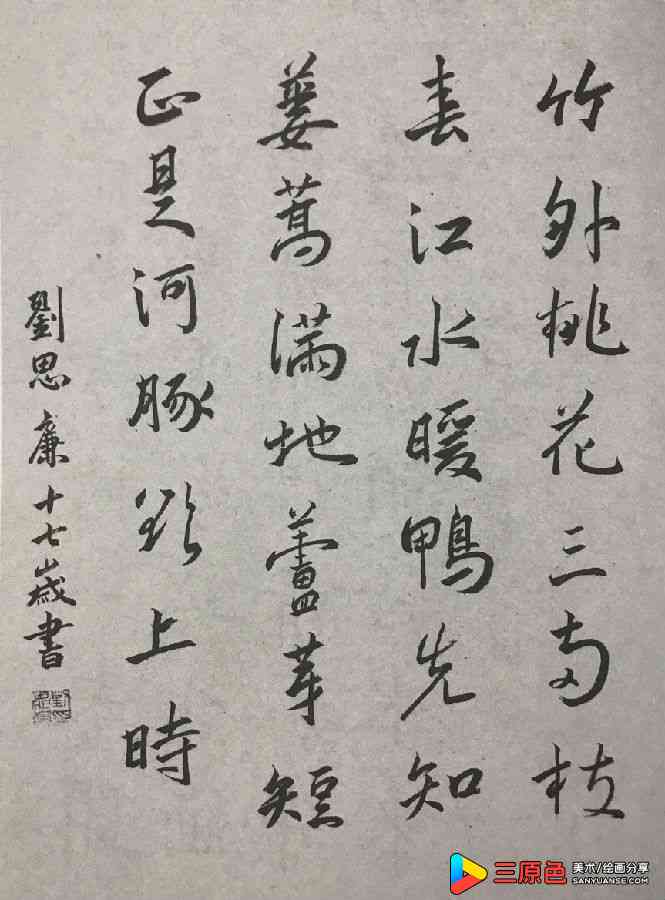 竹外桃花三兩枝
春江水暖鴨先知
蔞蒿滿地蘆芽短
正是河豚欲上時
劉思廉十七歲書
三原色
美术/绘画分享
SANYUANSE.COM